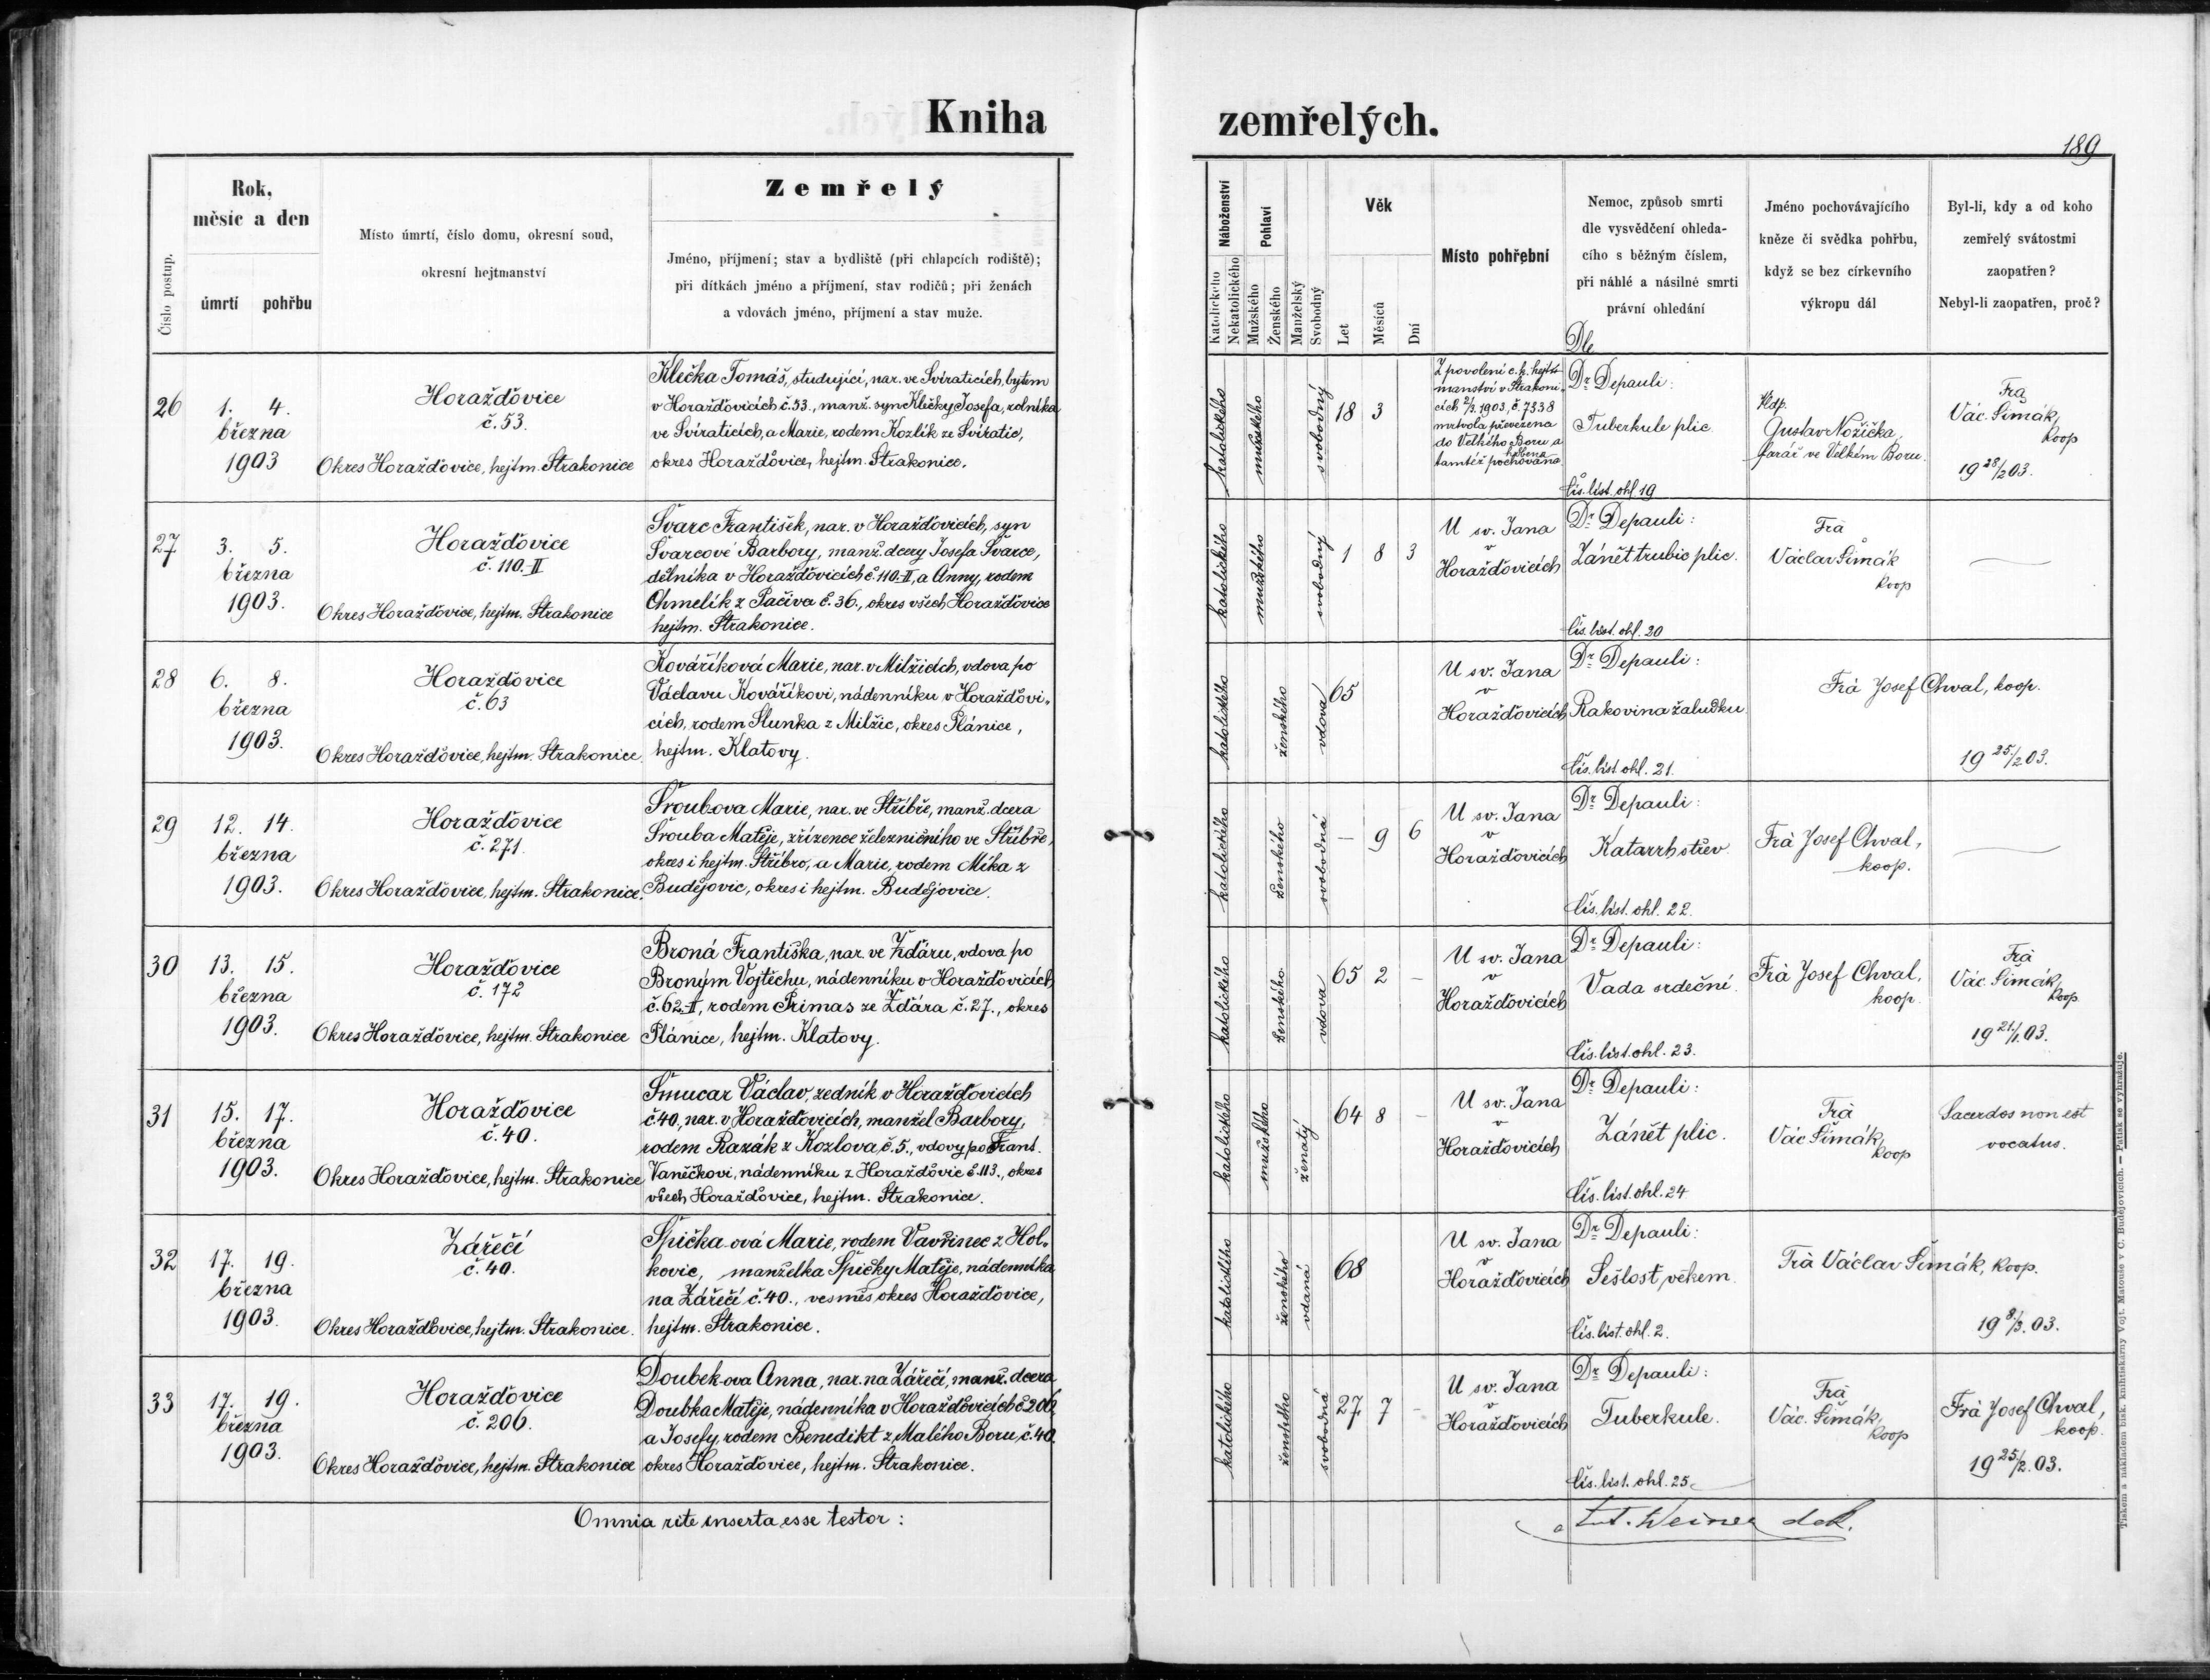 Kniha
zemřelých.
189
Číslo postup.
Rok,
měsíc a den
úmrtí pohřbu
Místo úmrtí, číslo domu, okresní soud,
okresní hejtmanství
Zemřelý
Jméno, příjmení; stav a bydliště (při chlapcích rodiště);
při dítkách jméno a příjmení, stav rodičů; při ženách
a vdovách jméno, příjmení a stav muže.
Náboženství
Katolického
Nekatolického
Pohlaví
Mužského
Ženského
Manželský
Svobodný
Věk
Let
Měsíců
Dní
Místo pohřební
Nemoc, způsob smrti
dle vysvědčení ohleda-
cího s běžným číslem,
při náhlé a násilné smrti
právní ohledání
Jméno pochovávajícího
kněze či svědka pohřbu,
když se bez církevního
výkropu dál
Byl-li, kdy a od koho
zemřelý svátostmi
zaopatřen?
Nebyl-li zaopatřen, proč?
Dle
26
1. 4.
března
1903
Horažďovice
č. 53.
Okres Horažďovice, hejtm. Strakonice
Klečka Tomáš, studující, nar. ve Svíraticích, bytem
v Horažďovicích č. 53., manž. syn Klečky Josefa, rolníka
ve Svíraticích, a Marie, rodem Kozlík ze Svíratic,
okres Horažďovice, hejtm. Strakonice.
katolického
mužského
svobodný
18 3
Z povolení c. k. hejt-
manství v Strakoni-
cích 2/3. 1903, č. 7338
mrtvola převezena
do Velkého Boru a
tamtéž pochována
Dr. Depauli:
Tuberkule plic.
Čís. list. ohl. 19
Vldp.
Gustav Nožička,
farář ve Velkém Boru.
Frà
Vác. Šimák,
koop
19 28/2 03.
27
3. 5.
března
1903.
Horažďovice
č. 110.-II
Okres Horažďovice, hejtm. Strakonice
Švarc František, nar. v Horažďovicích, syn
Švarcové Barbory, manž. dcery Josefa Švarce,
dělníka v Horažďovicích č. 110.-II, a Anny, rodem
Chmelík z Pačiva č. 36., okres všech Horažďovice
hejtm. Strakonice.
katolického
mužského
svobodný
1 8 3
U sv. Jana
v
Horažďovicích
Dr. Depauli:
Zánět trubic plic.
Čís. list. ohl. 20
Frà
Václav Šimák
koop
28
6. 8.
března
1903.
Horažďovice
č. 63
Okres Horažďovice, hejtm. Strakonice.
Kováříková Marie, nar. v Milžicích, vdova po
Václavu Kováříkovi, nádenníku v Horažďovi-
cích, rodem Slunka z Milžic, okres Plánice,
hejtm. Klatovy.
katolického
ženského
vdova
65
U sv. Jana
v
Horažďovicích
Dr. Depauli:
Rakovina žaludku.
Čís. list. ohl. 21.
Frà Josef Chval, koop.
19 25/2 03.
29
12. 14.
března
1903.
Horažďovice
č. 271.
Okres Horažďovice, hejtm. Strakonice.
Šroubova Marie, nar. ve Stříbře, manž. dcera
Šrouba Matěje, zřízence železničního ve Stříbře,
okres i hejtm. Stříbro, a Marie, rodem Míka z
Budějovic, okres i hejtm. Budějovice.
katolického
ženského
svobodná
— 9 6
U sv. Jana
v
Horažďovicích
Dr. Depauli:
Katarrh střev.
Čís. list. ohl. 22.
Frà Josef Chval,
koop.
30
13. 15.
března
1903.
Horažďovice
č. 172
Okres Horažďovice, hejtm. Strakonice
Broná Františka, nar. ve Žďáru, vdova po
Broným Vojtěchu, nádenníku v Horažďovicích
č. 62.-II, rodem Primas ze Žďára č. 27., okres
Plánice, hejtm. Klatovy.
katolického
ženského
vdova
65 2 –
U sv. Jana
v
Horažďovicích
Dr. Depauli:
Vada srdeční.
Čís. list. ohl. 23.
Frà Josef Chval,
koop.
Frà
Vác. Šimák,
koop
19 21/1. 03.
31
15. 17.
března
1903.
Horažďovice
č. 40.
Okres Horažďovice, hejtm. Strakonice
Šmucar Václav, zedník v Horažďovicích
č. 40, nar. v Horažďovicích, manžel Barbory,
rodem Razák z Kozlova, č. 5., vdovy po Frant.
Vaněčkovi, nádenníku z Horažďovic č. 113., okres
všech Horažďovice, hejtm. Strakonice.
katolického
mužského
ženatý
64 8 –
U sv. Jana
v
Horažďovicích
Dr. Depauli:
Zánět plic.
Čís. list. ohl. 24
Frà
Vác Šimák,
koop
Sacerdos non est
vocatus.
32
17. 19.
března
1903.
Zářečí
č. 40.
Okres Horažďovice, hejtm. Strakonice.
Špička-ová Marie, rodem Vavřinec z Hol-
kovic, manželka Špičky Matěje, nádenníka
na Zářečí č. 40., vesměs okres Horažďovice,
hejtm. Strakonice.
katolického
ženského
vdaná
68
U sv. Jana
v
Horažďovicích
Dr. Depauli:
Sešlosť věkem.
Čís. list. ohl. 2.
Frà Václav Šimák, koop.
19 8/3. 03.
33
17. 19.
března
1903.
Horažďovice
č. 206.
Okres Horažďovice, hejtm. Strakonice
Doubek-ova Anna, nar. na Zářečí, manž. dcera
Doubka Matěje, nádenníka v Horažďovicích č. 206,
a Josefy, rodem Benedikt z Malého Boru, č. 40.
okres Horažďovice, hejtm. Strakonice.
katolického
ženského
svobodná
27 7 –
U sv. Jana
v
Horažďovicích
Dr. Depauli:
Tuberkule.
Čís. list. ohl. 25.
Frà
Vác. Šimák,
koop
Frà Josef Chval,
koop.
19 25/2. 03.
Omnia rite inserta esse testor:
Weiner dek.
Tiskem a nákladem bisk. knihtiskárny Vojt. Matouše v Č. Budějovicích. — Patisk se vyhražuje.